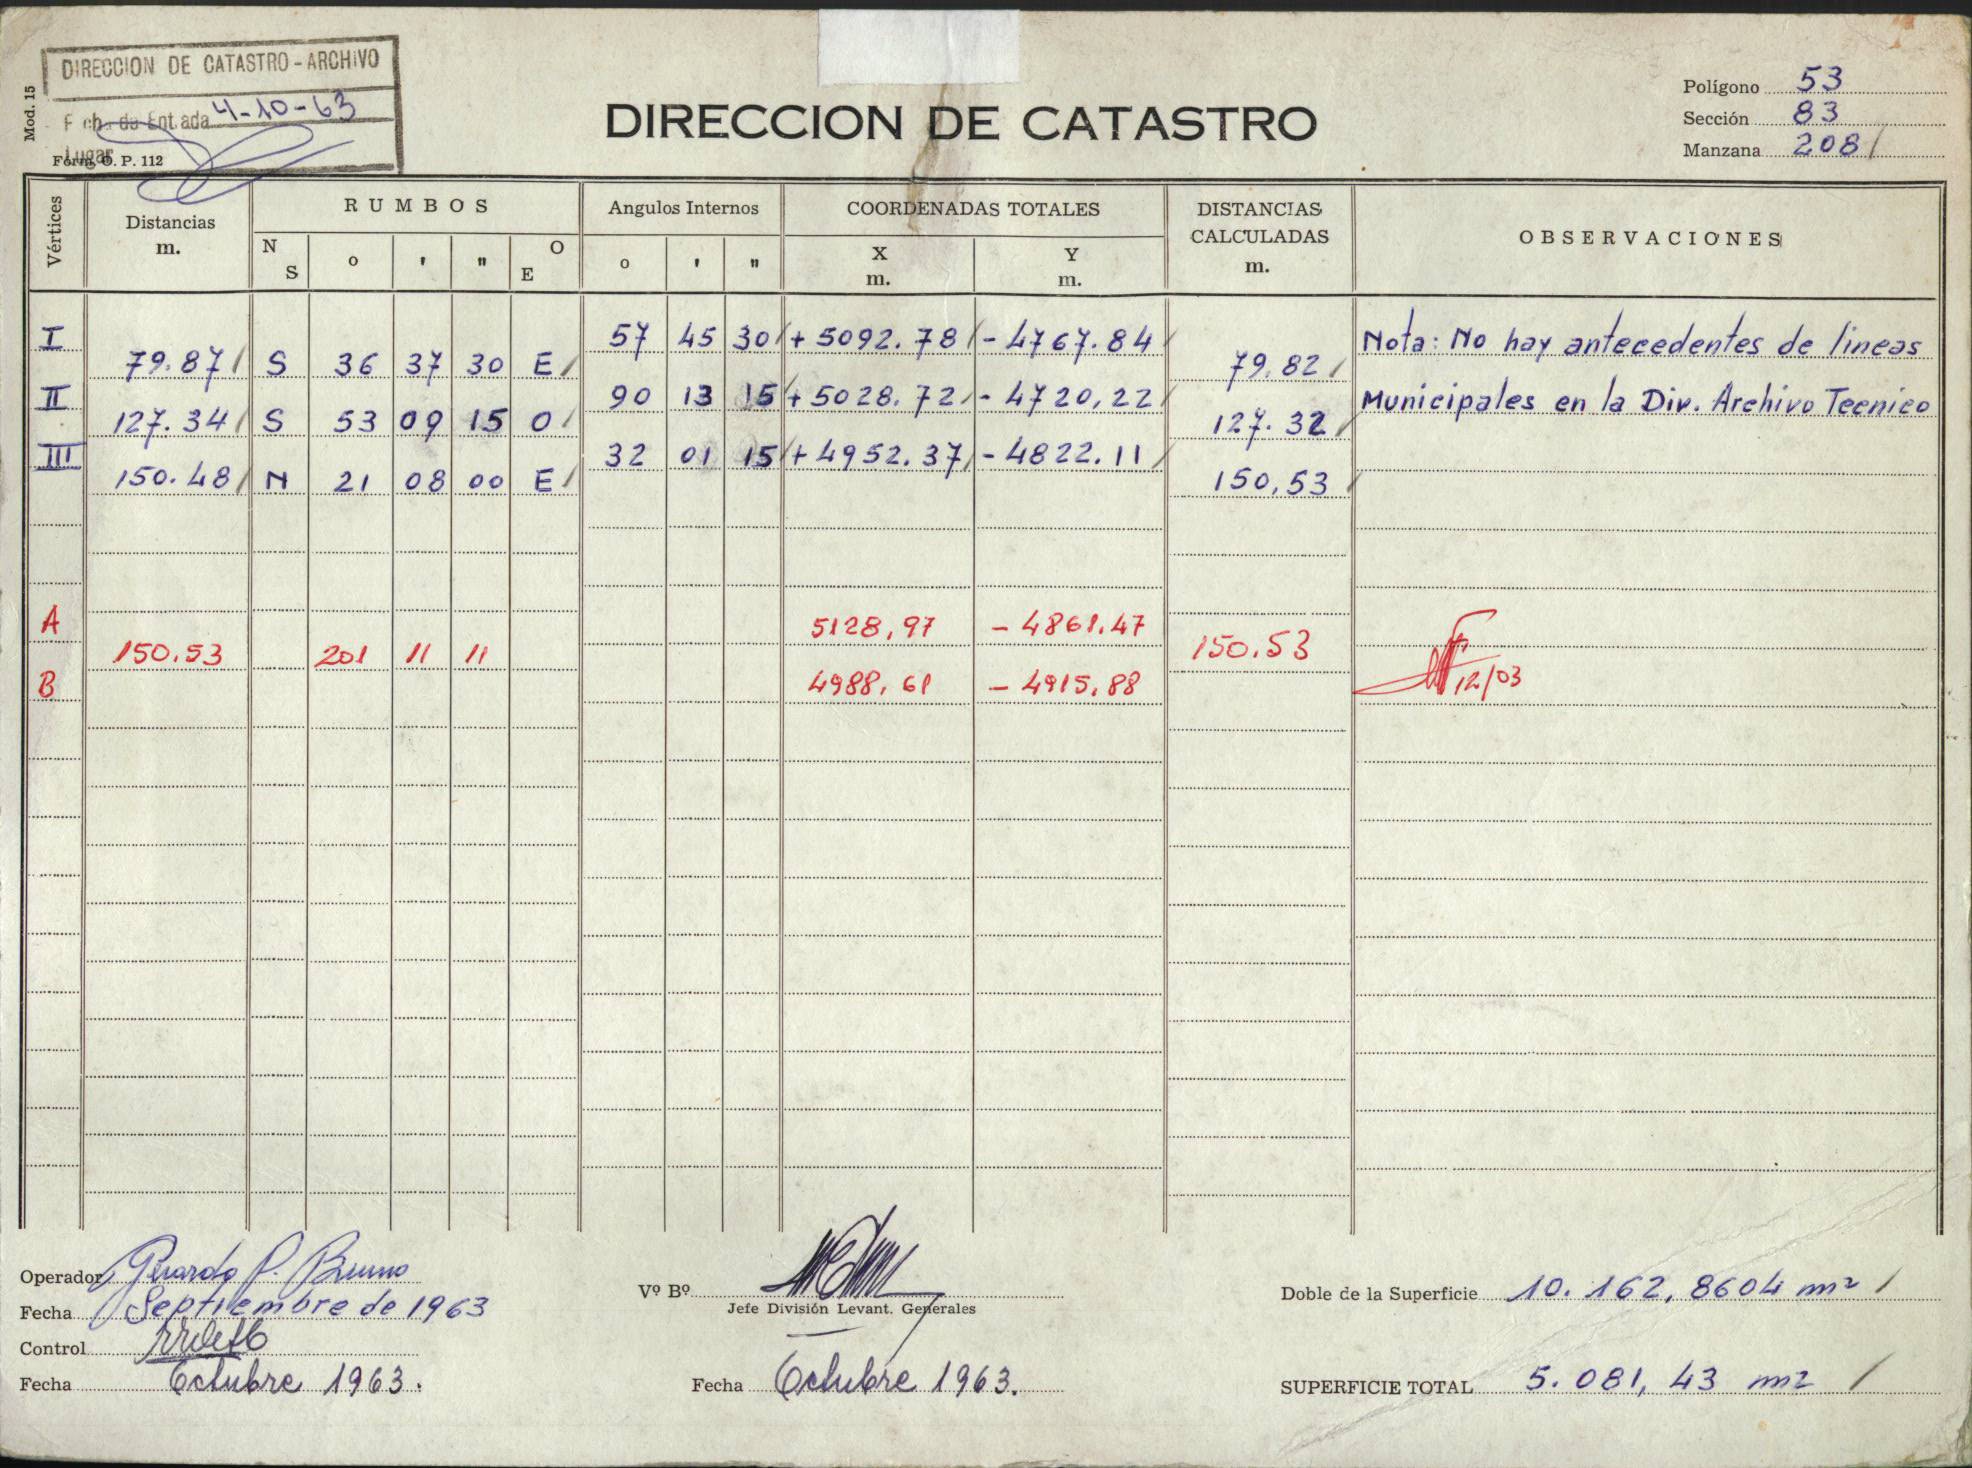 DIRECCION DE CATASTRO - ARCHIVO
Fecha de Entrada 4-10-63
Lugar
Mod. 15
Form. O. P. 112
DIRECCION DE CATASTRO
Polígono 53
Sección 83
Manzana 208 /
Vértices
Distancias
m.
RUMBOS
N S ° ' " O E
Angulos Internos
° ' "
COORDENADAS TOTALES
X m. Y m.
DISTANCIAS CALCULADAS m.
OBSERVACIONES
I 57 45 30 / + 5092.78 / - 4767.84 / Nota: No hay antecedentes de lineas
79.87 / S 36 37 30 E / 79.82 /
II 90 13 15 / + 5028.72 / - 4720,22 / Municipales en la Div. Archivo Tecnico
127.34 / S 53 09 15 O / 127.32 /
III 32 01 15 / + 4952.37 / - 4822.11 /
150.48 / N 21 08 00 E / 150,53 /
A 5128,97 - 4861.47
150.53 201 11 11 150.53
B 4988,61 - 4915,88 12/03
Operador Gerardo P. Bruno
Fecha Septiembre de 1963
Control
Fecha Octubre 1963.
Vº Bº
Jefe División Levant. Generales
Fecha Octubre 1963.
Doble de la Superficie 10.162,8604 m² /
SUPERFICIE TOTAL 5.081,43 m2 /